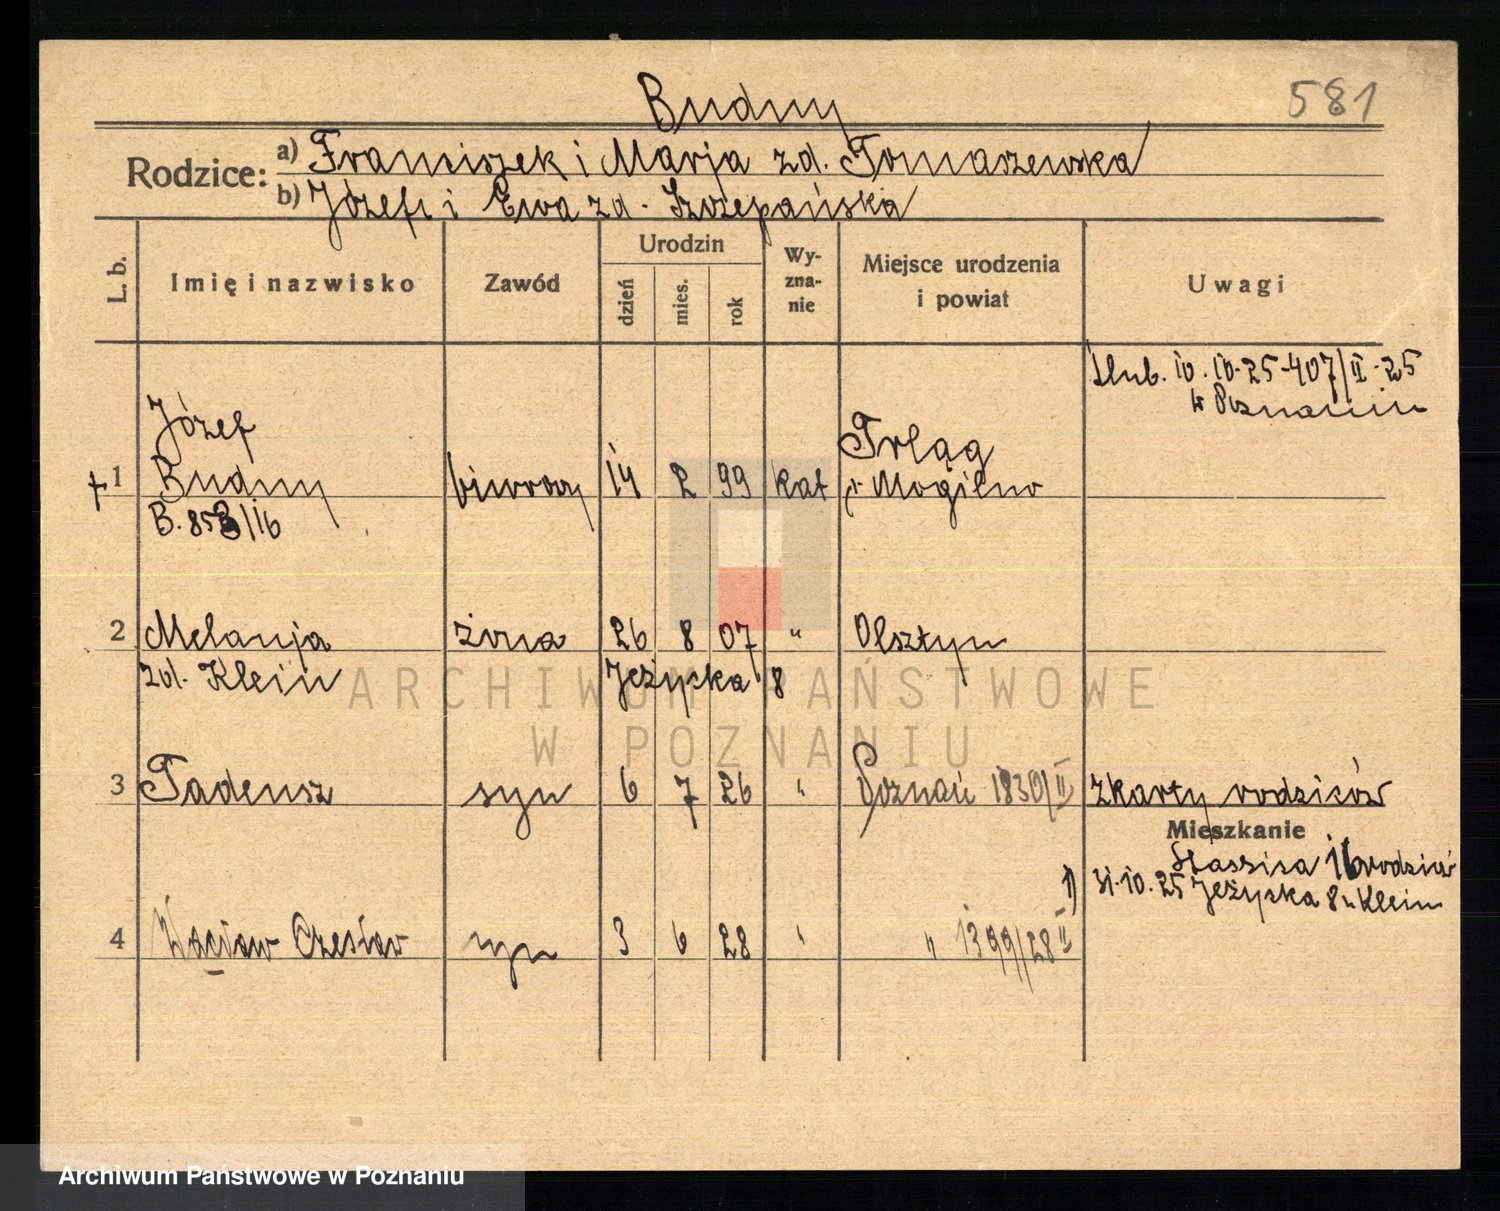 Budny
581
Rodzice:
a) Franciszek i Marja zd. Tomaszewska
b) Józef i Ewa zd. Szczepańska
L. b.
Imię i nazwisko
Zawód
Urodzin
dzień
mies.
rok
Wy-
zna-
nie
Miejsce urodzenia
i powiat
Uwagi
ślub. 10.10.25-407/II-25
w Poznaniu
1 Józef
Budny
B. 853/16
biurowy 14 2 99 kat
Trląg
p. Mogilno
2 Melanja żona 26 8 07 " Olsztyn
zd. Klein Jeżycka 8
3 Tadeusz syn 6 7 26 " Poznań 1830/II z karty rodziców
Mieszkanie
Staszica 16 u rodziców
1) 31.10.25 Jeżycka 8 u Klein
4 Wacław Czesław syn 3 6 28 " " 1399/28 II
ARCHIWUM PAŃSTWOWE
W POZNANIU
Archiwum Państwowe w Poznaniu